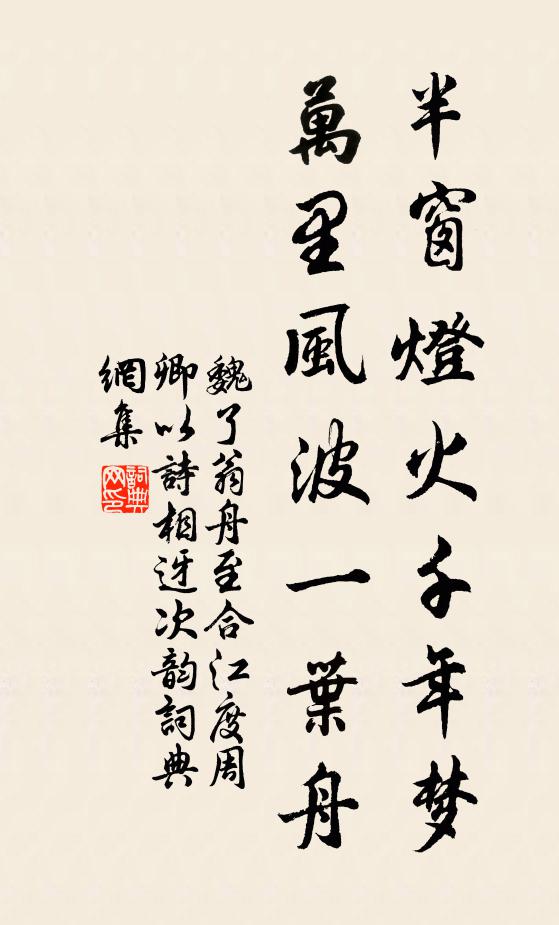 半窗燈火千年梦
萬里風波一葉舟
魏了翁舟至合江度周
卿以詩相迓次韵詞典
網集
詞典
网印